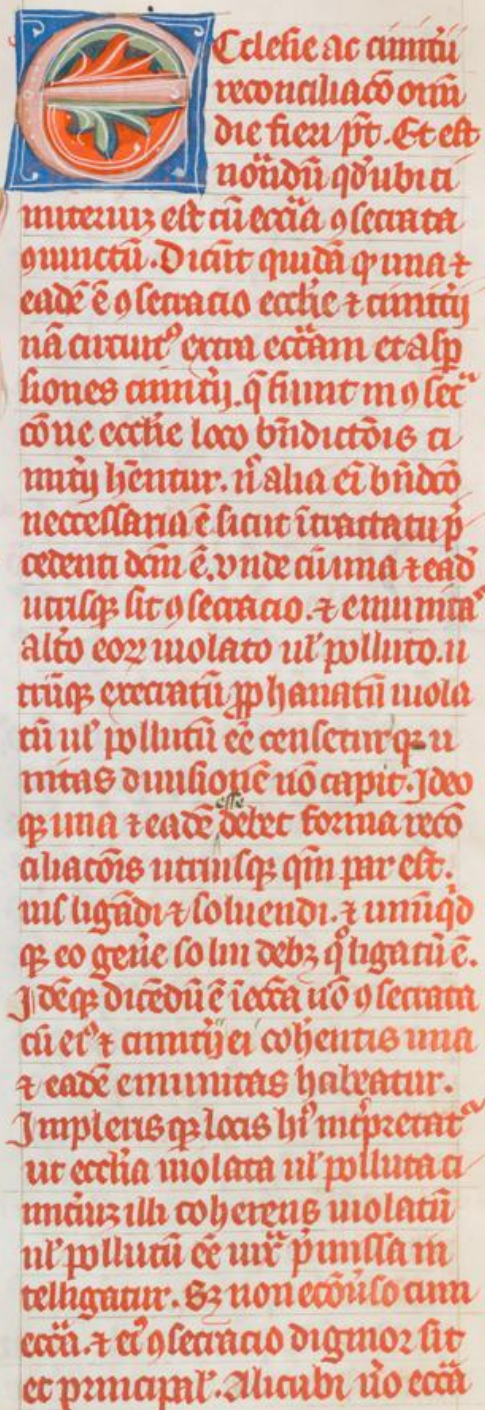 Ecclesie ac cimitii
reconciliacō omī
die fieri pōt. Et est
notādū qđ ubi ci
miteriuꝫ est cū ecc̄ia ꝯsecrata
ꝯiunctū. Dicūt quidā qꝫ una ⁊
eadē ē ꝯsecracio ecclīe ⁊ cimitīj
nā circuitꝰ extra ecc̄am et aspersiones
cimitīj. q̄ fiunt in ꝯsecr̄a
cōne ecclīe loco bn̄dictōis ci
mitīj hn̄tur. n̄ alia ei bn̄dcō
neccessaria ē sicut ī tractatu p̄
cedenti dcm̄ ē. vnde cū una ⁊ eađ
utriusqꝫ sit ꝯsecracio. ⁊ emunitaˢ
altō eoꝝ uiolato ul̓ polluto. u
trūqꝫ execratū ꝓphanatū uiola
tū ul̓ pollutū ēē censetur qꝫ u
nitas diuisionē nō capit. Ideo
qꝫ una ⁊ eadē esse debet forma recō
ciliacōis utriusqꝫ qm̄ par est.
ius ligādi ⁊ soluendi. ⁊ unūqđ
qꝫ eo gen̄e solui debꝫ q̊ ligatū ē.
Idēqꝫ dicēdū ē ī ecc̄a nō ꝯsecrata
cū eiꝰ ⁊ cimitīj ei coh̄entis una
⁊ eadē emunitas habeatur.
In pleris qꝫ locis hiꝰ int̄pretatʳ
ut ecclīa uiolata ul̓ polluta ci
mit̄iuꝫ illi coherens uiolatū
ul̓ pollutū ēē iux̄ p̄missa in
telligatur. Sꝫ non ecōu̓so cum
ecc̄ia. ⁊ eiꝰ ꝯsecracio dignior sit
et principal̓. Alicubi u̓o ecc̄ia